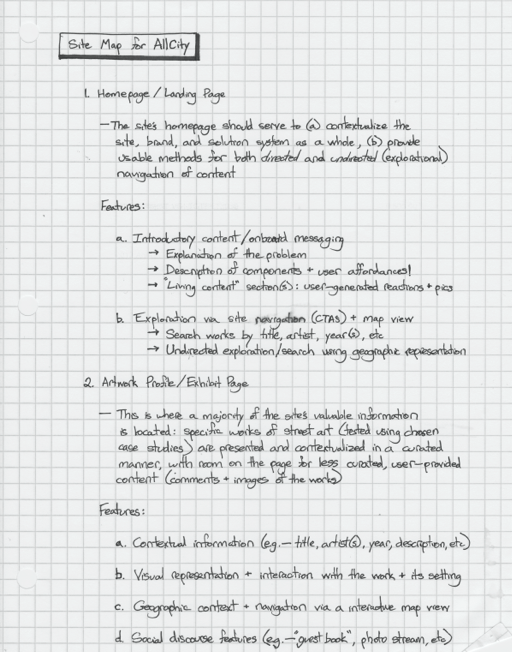 Site Map for AllCity
1. Homepage / Landing Page
— The site's homepage should serve to (a) contextualize the
site, brand, and solution system as a whole, (b) provide
usable methods for both directed and undirected (explorational)
navigation of content
Features:
a. Introductory content / onboard messaging
→ Explanation of the problem
→ Description of components + user affordances!
→ "Living content" section(s): user-generated reactions + pics
b. Exploration via site navigation (CTAs) + map view
→ Search works by title, artist, year(s), etc
→ Undirected exploration/search using geographic representation
2. Artwork Profile / Exhibit Page
— This is where a majority of the site's valuable information
is located: specific works of street art (tested using chosen
case studies) are presented and contextualized in a curated
manner, with room on the page for less curated, user-provided
content (comments + images of the works)
Features:
a. Contextual information (eg.— title, artist(s), year, description, etc)
b. Visual representation + interaction with the work + its setting
c. Geographic context + navigation via a interactive map view
d. Social discourse features (eg.—"guest book", photo stream, etc)